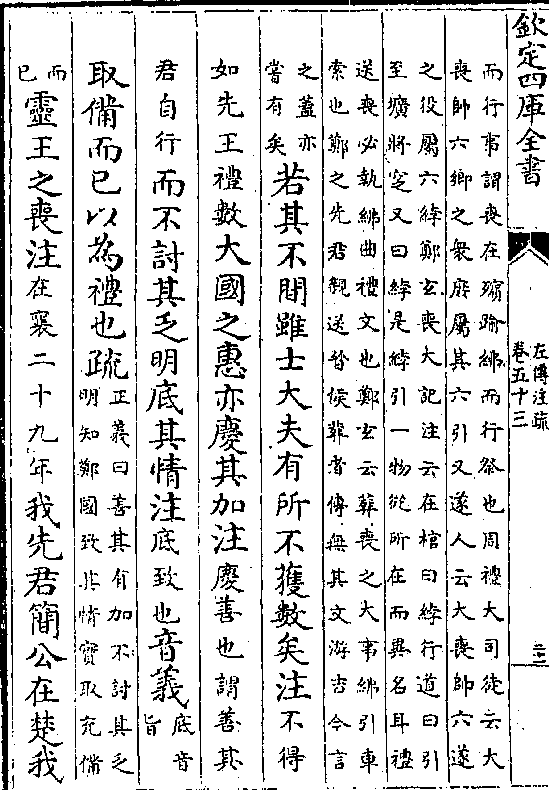 欽定四庫全書
左傳注疏
卷五十三
而行事謂喪在殯踰紼而行祭也周禮大司徒云大
喪帥六鄉之衆庶屬其六引又遂人云大喪帥六遂
之役屬六綍鄭玄喪大記注云在棺曰綍行道曰引
至壙將窆又曰綍是綍引一物從所在而異名耳禮
送喪必執紼曲禮文也鄭玄云葬喪之大事紼引車
索也鄭之先君親送晉侯葬者傳無其文游吉今言
之蓋亦
嘗有矣
若其不間雖士大夫有所不獲數矣注不得
如先王禮數大國之惠亦慶其加注慶善也謂善其
君自行而不討其乏明底其情注底致也音義底音
旨
取備而已以為禮也疏正義曰善其有加不討其乏
明知鄭國致其情實取充備
而
已
靈王之喪注在襄二十九年我先君簡公在楚我